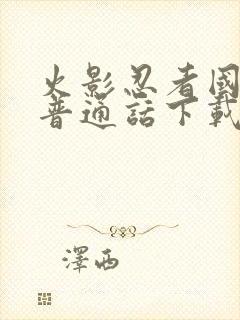 火影忍者國
普通話下載
澤西